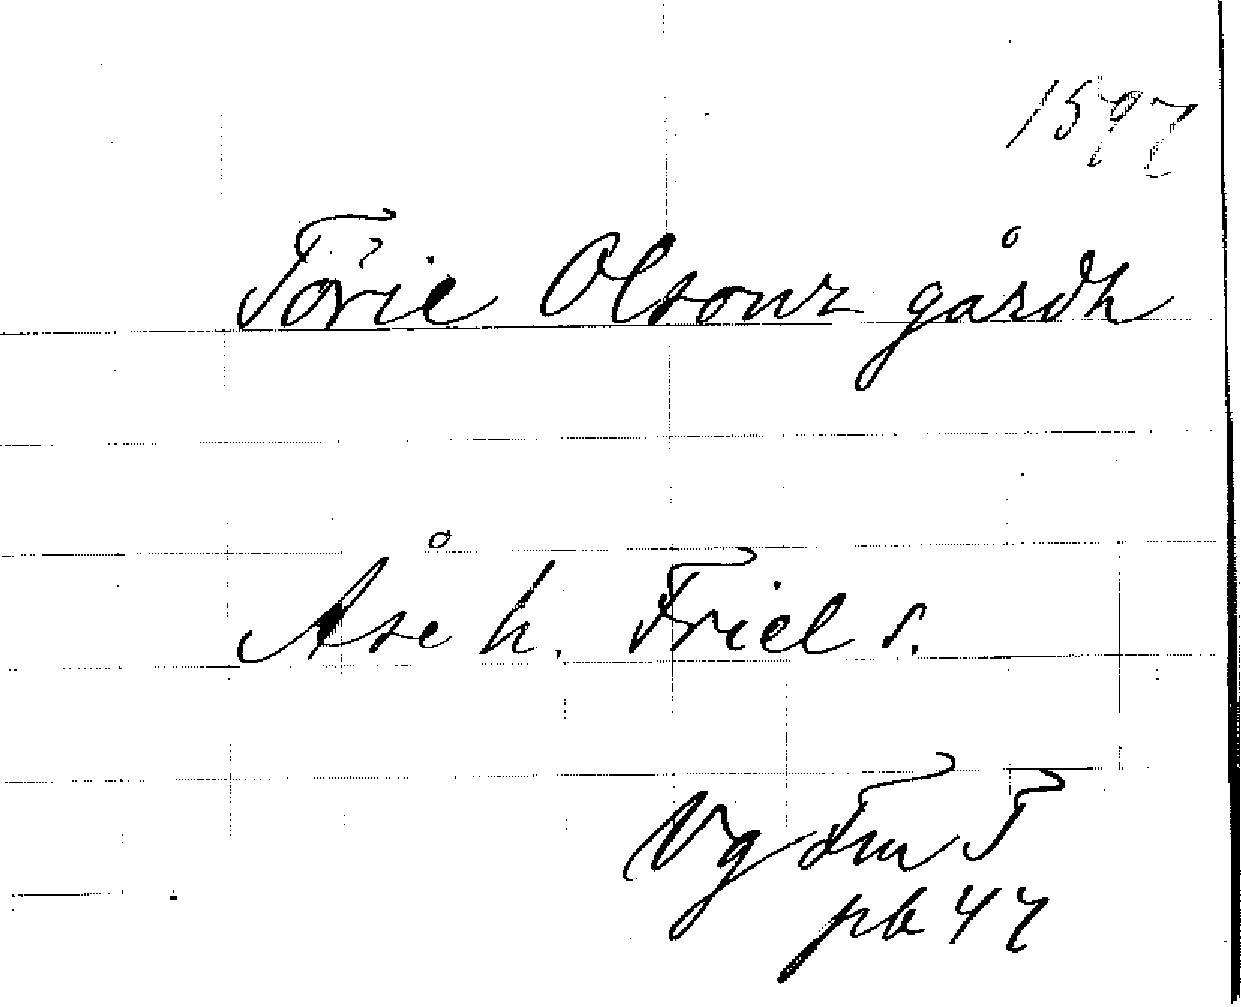 1597
Törie Olsonz gårdh
Åse h. Friel s.
Vg Tu T
pb 47